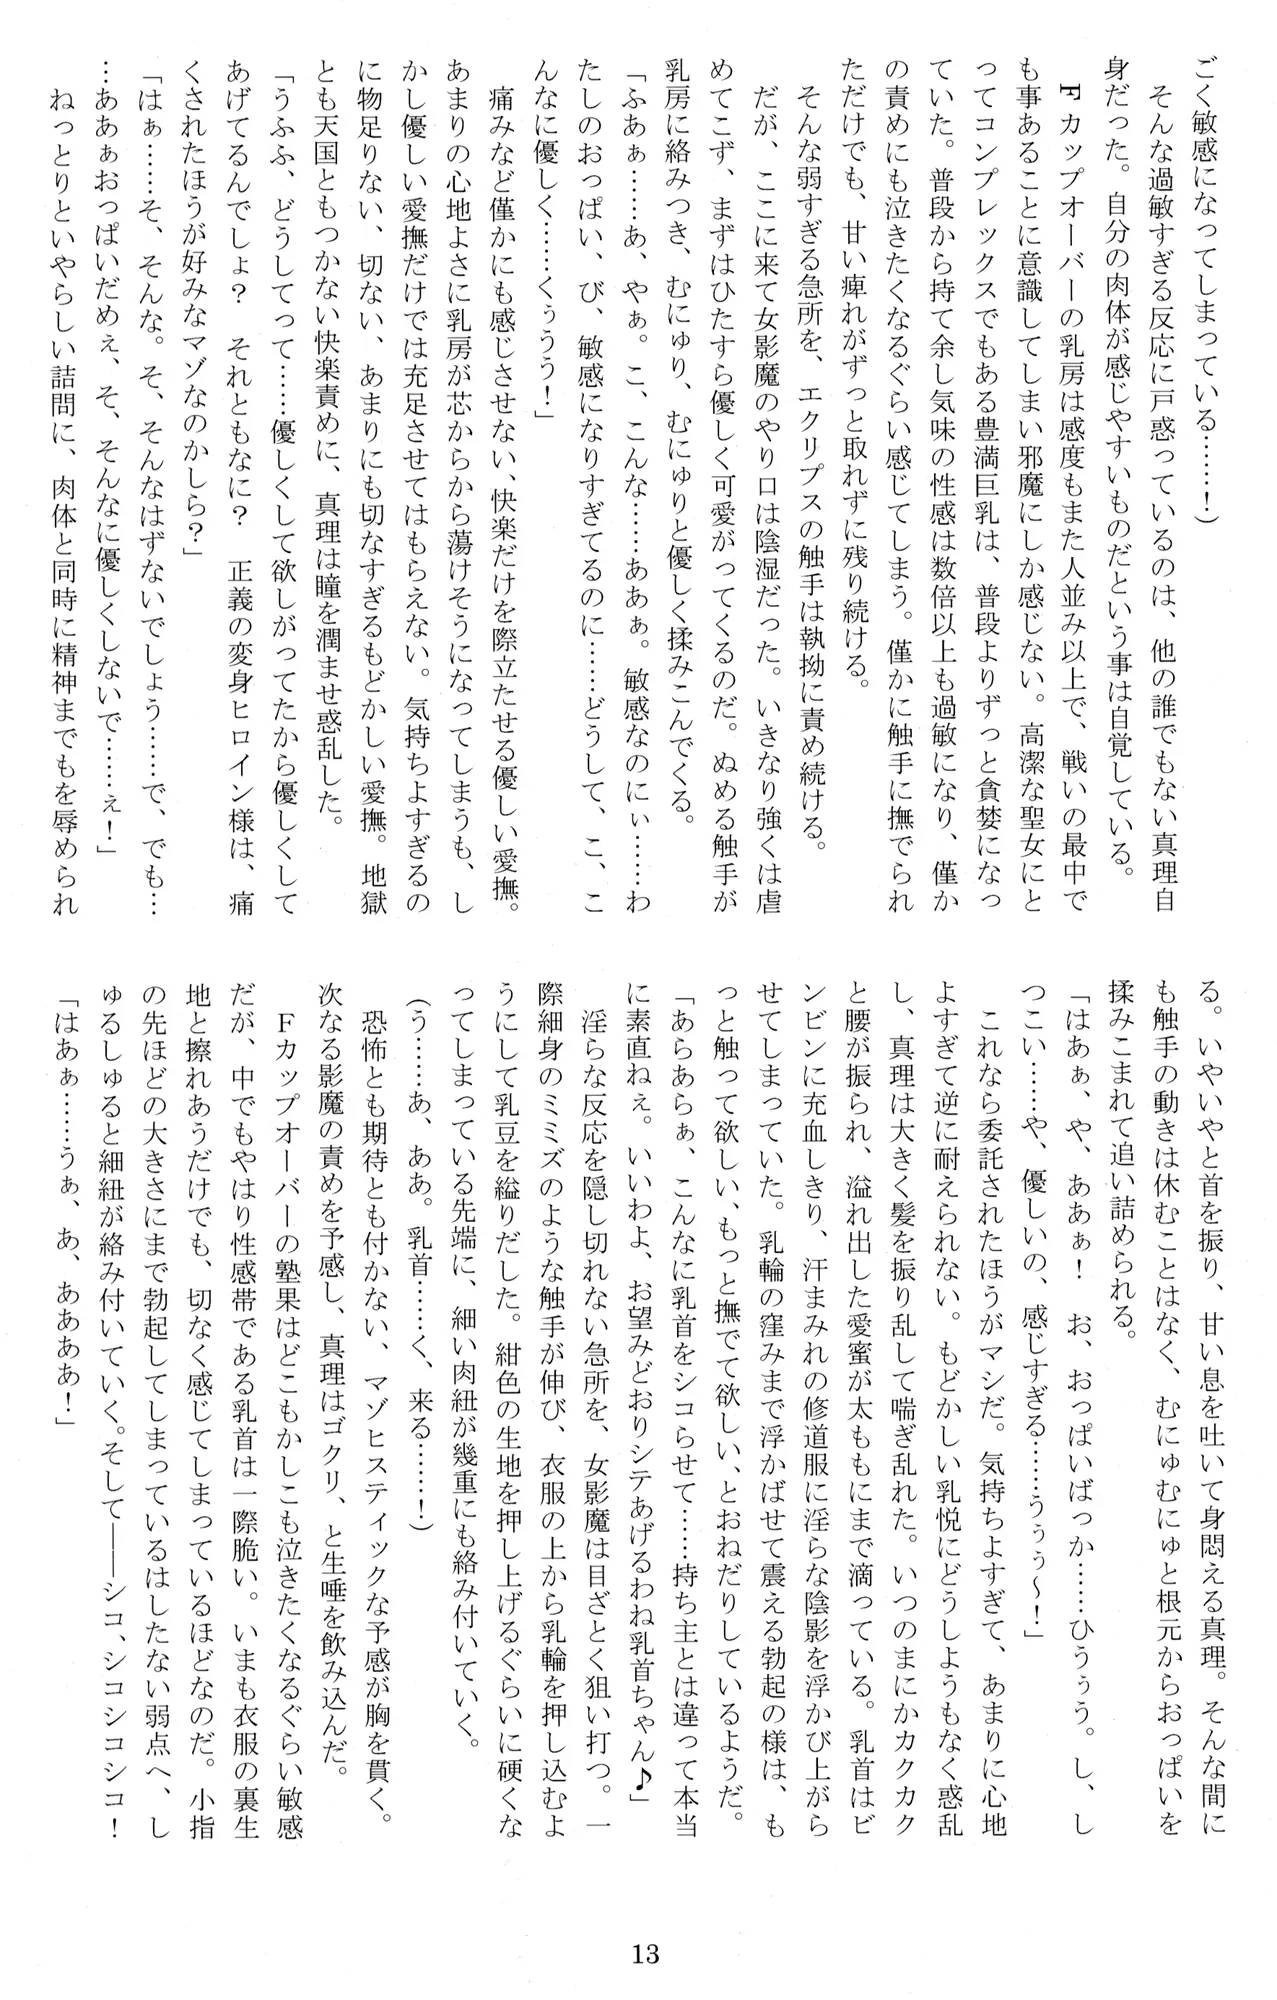 ごく敏感になってしまっている……！）
そんな過敏すぎる反応に戸惑っているのは、他の誰でもない真理自
身だった。自分の肉体が感じやすいものだという事は自覚している。
Ｆカップオーバーの乳房は感度もまた人並み以上で、戦いの最中で
も事あることに意識してしまい邪魔にしか感じない。高潔な聖女にと
ってコンプレックスでもある豊満巨乳は、普段よりずっと貪婪になっ
ていた。普段から持て余し気味の性感は数倍以上も過敏になり、僅か
の責めにも泣きたくなるぐらい感じてしまう。僅かに触手に撫でられ
ただけでも、甘い痺れがずっと取れずに残り続ける。
そんな弱すぎる急所を、エクリプスの触手は執拗に責め続ける。
だが、ここに来て女影魔のやり口は陰湿だった。いきなり強くは虐
めてこず、まずはひたすら優しく可愛がってくるのだ。ぬめる触手が
乳房に絡みつき、むにゅり、むにゅりと優しく揉みこんでくる。
「ふあぁ……あ、やぁ。こ、こんな……ああぁ。敏感なのにぃ……わ
たしのおっぱい、び、敏感になりすぎてるのに……どうして、こ、こ
んなに優しく……くぅうう！」
痛みなど僅かにも感じさせない、快楽だけを際立たせる優しい愛撫。
あまりの心地よさに乳房が芯からから蕩けそうになってしまうも、し
かし優しい愛撫だけでは充足させてはもらえない。気持ちよすぎるの
に物足りない、切ない、あまりにも切なすぎるもどかしい愛撫。地獄
とも天国ともつかない快楽責めに、真理は瞳を潤ませ惑乱した。
「うふふ、どうしてって……優しくして欲しがってたから優しくして
あげてるんでしょ？　それともなに？　正義の変身ヒロイン様は、痛
くされたほうが好みなマゾなのかしら？」
「はぁ……そ、そんな。そ、そんなはずないでしょう……で、でも…
…ああぁおっぱいだめぇ、そ、そんなに優しくしないで……ぇ！」
ねっとりといやらしい詰問に、肉体と同時に精神までもを辱められ
る。いやいやと首を振り、甘い息を吐いて身悶える真理。そんな間に
も触手の動きは休むことはなく、むにゅむにゅと根元からおっぱいを
揉みこまれて追い詰められる。
「はあぁ、や、ああぁ！　お、おっぱいばっか……ひうぅう。し、し
つこい……や、優しいの、感じすぎる……うぅぅ～！」
これなら委託されたほうがマシだ。気持ちよすぎて、あまりに心地
よすぎて逆に耐えられない。もどかしい乳悦にどうしようもなく惑乱
し、真理は大きく髪を振り乱して喘ぎ乱れた。いつのまにかカクカク
と腰が振られ、溢れ出した愛蜜が太ももにまで滴っている。乳首はビ
ンビンに充血しきり、汗まみれの修道服に淫らな陰影を浮かび上がら
せてしまっていた。乳輪の窪みまで浮かばせて震える勃起の様は、も
っと触って欲しい、もっと撫でて欲しい、とおねだりしているようだ。
「あらあらぁ、こんなに乳首をシコらせて……持ち主とは違って本当
に素直ねぇ。いいわよ、お望みどおりシテあげるわね乳首ちゃん♪」
淫らな反応を隠し切れない急所を、女影魔は目ざとく狙い打つ。一
際細身のミミズのような触手が伸び、衣服の上から乳輪を押し込むよ
うにして乳豆を縊りだした。紺色の生地を押し上げるぐらいに硬くな
ってしまっている先端に、細い肉紐が幾重にも絡み付いていく。
（う……あ、ああ。乳首……く、来る……！）
恐怖とも期待とも付かない、マゾヒスティックな予感が胸を貫く。
次なる影魔の責めを予感し、真理はゴクリ、と生唾を飲み込んだ。
Ｆカップオーバーの塾果はどこもかしこも泣きたくなるぐらい敏感
だが、中でもやはり性感帯である乳首は一際脆い。いまも衣服の裏生
地と擦れあうだけでも、切なく感じてしまっているほどなのだ。小指
の先ほどの大きさにまで勃起してしまっているはしたない弱点へ、し
ゅるしゅると細紐が絡み付いていく。そして――シコ、シコシコシコ！
「はあぁ……うぁ、あ、ああああ！」
13